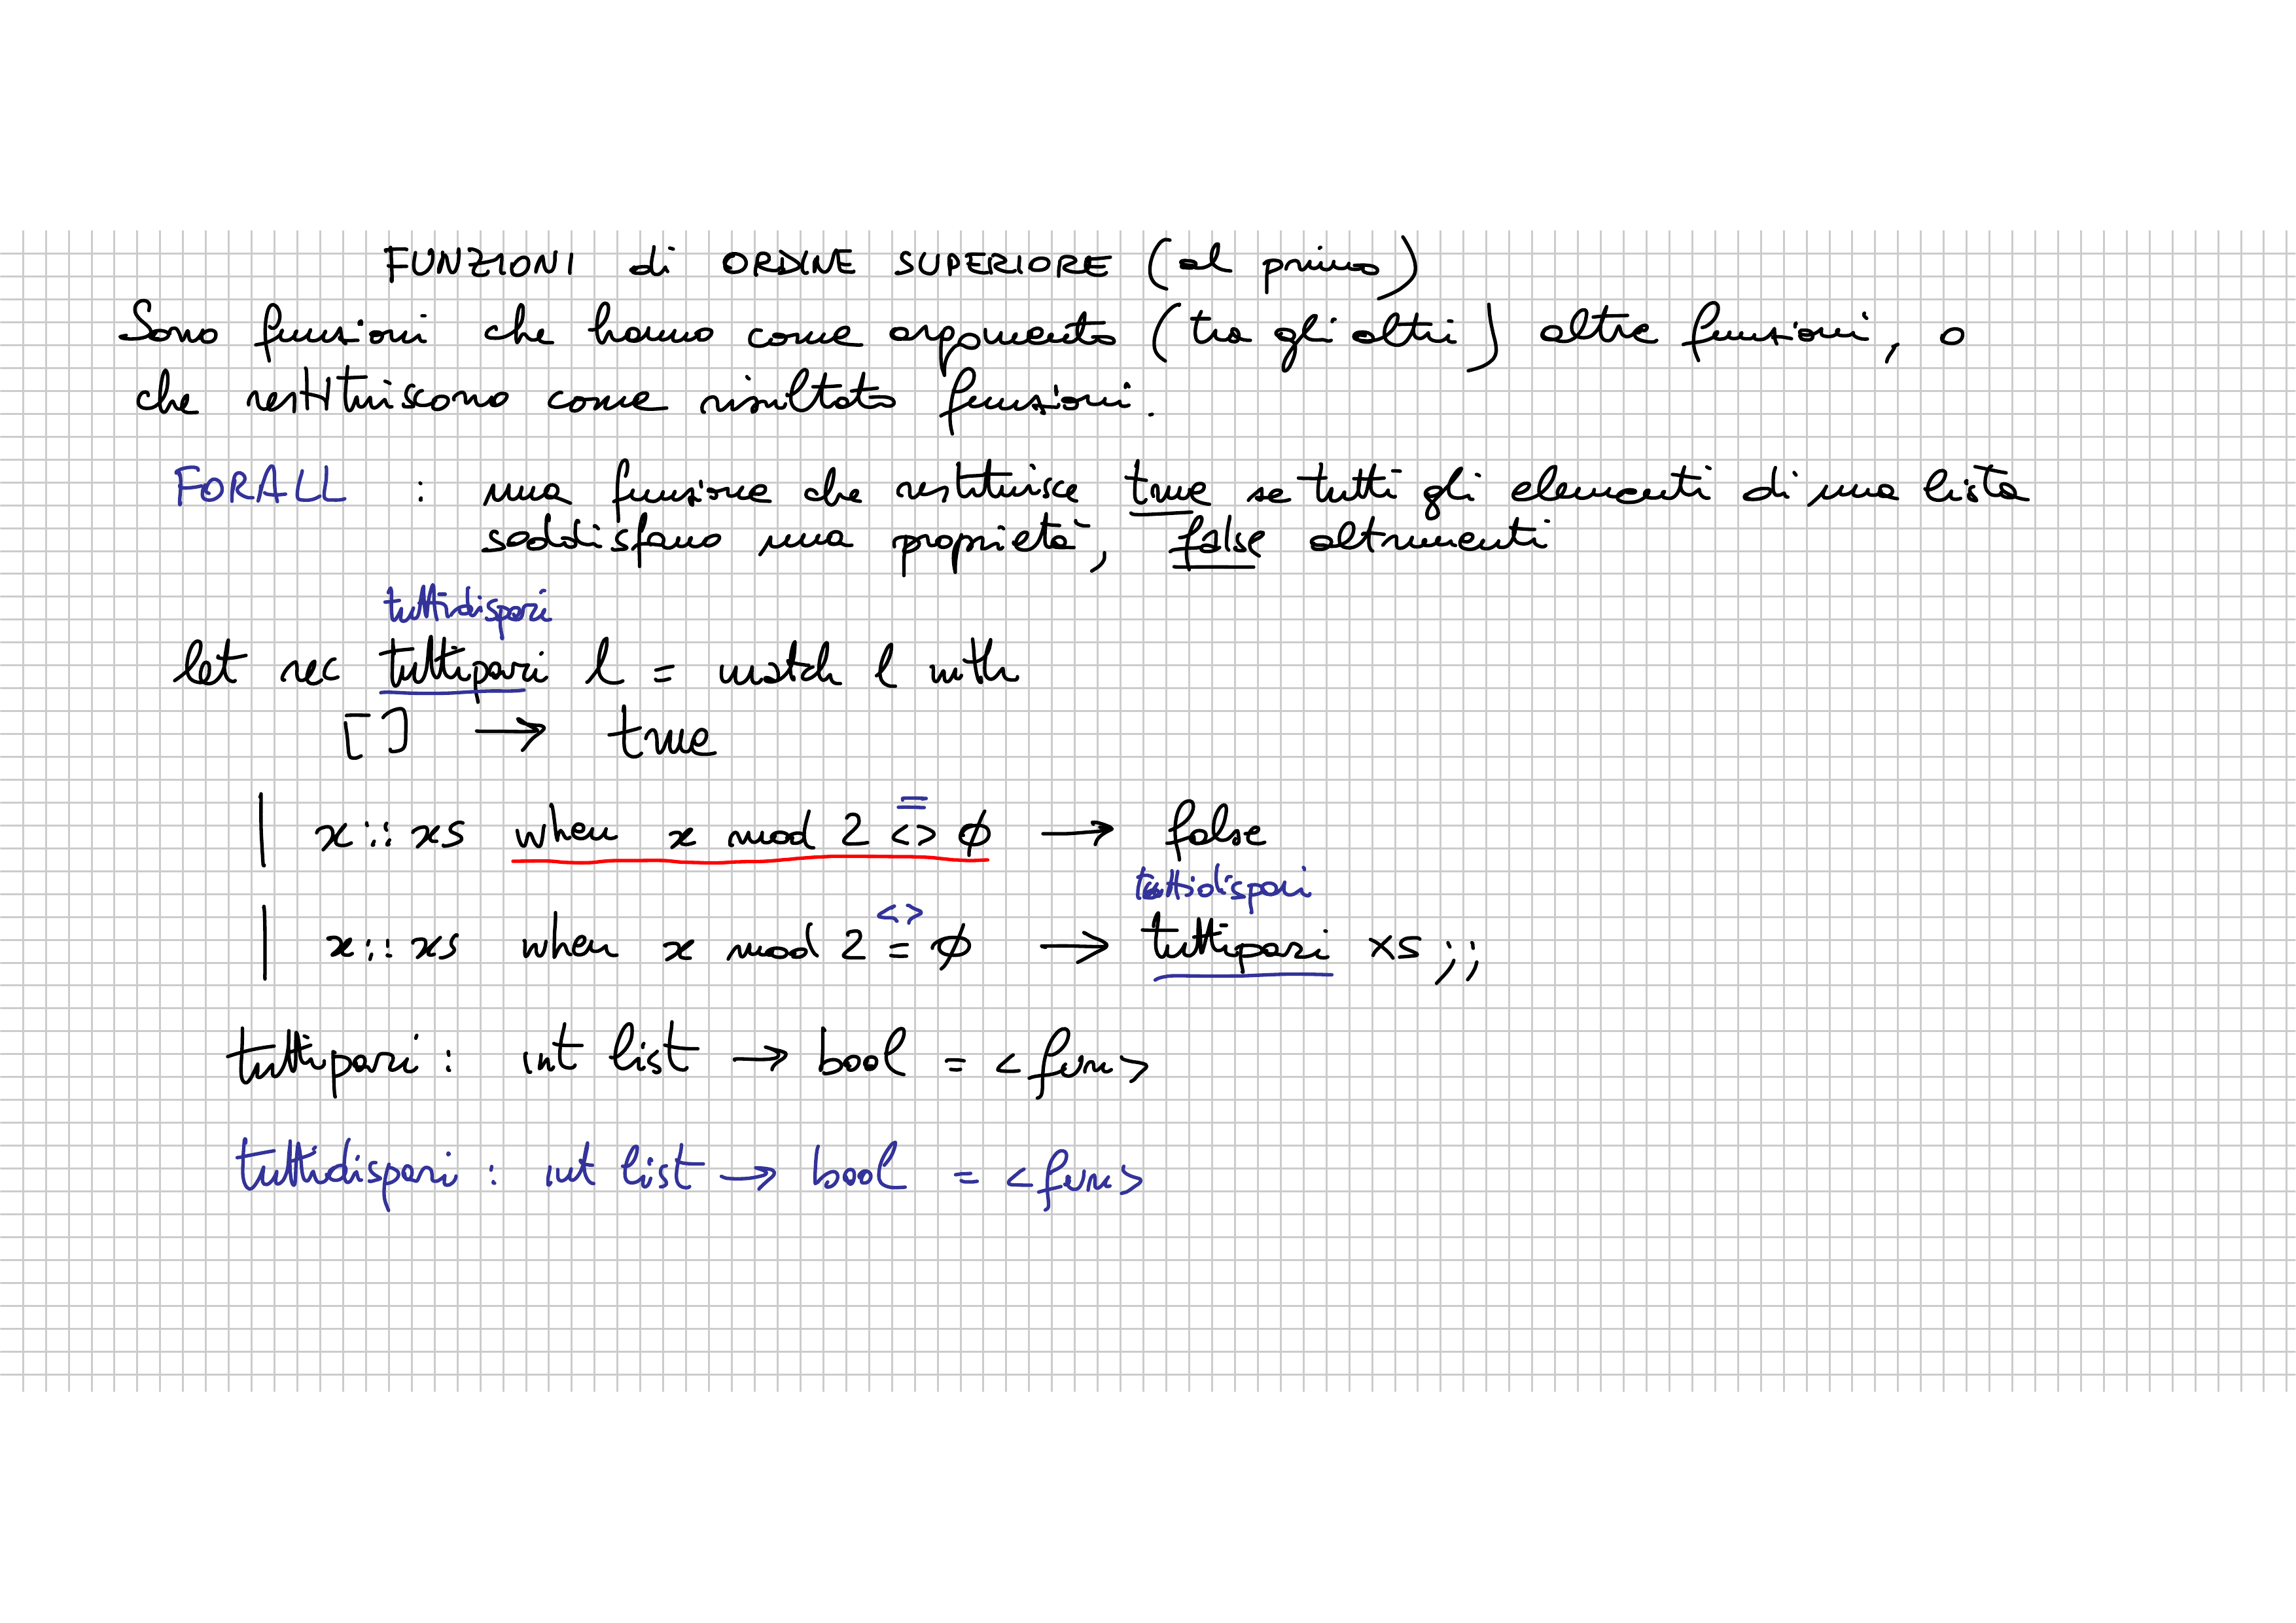 FUNZIONI di ORDINE SUPERIORE (al primo)
Sono funzioni che hanno come argomento (tra gli altri) altre funzioni, o
che restituiscono come risultato funzioni.
FORALL : una funzione che restituisce true se tutti gli elementi di una lista
soddisfano una proprietà, false altrimenti
tuttidispari
let rec tuttipari l = match l with
[] → true
=
| x::xs when x mod 2 <> 0 → false
tuttidispari
<>
| x::xs when x mod 2 = 0 → tuttipari xs;;
tuttipari : int list → bool = <fun>
tuttidispari : int list → bool = <fun>